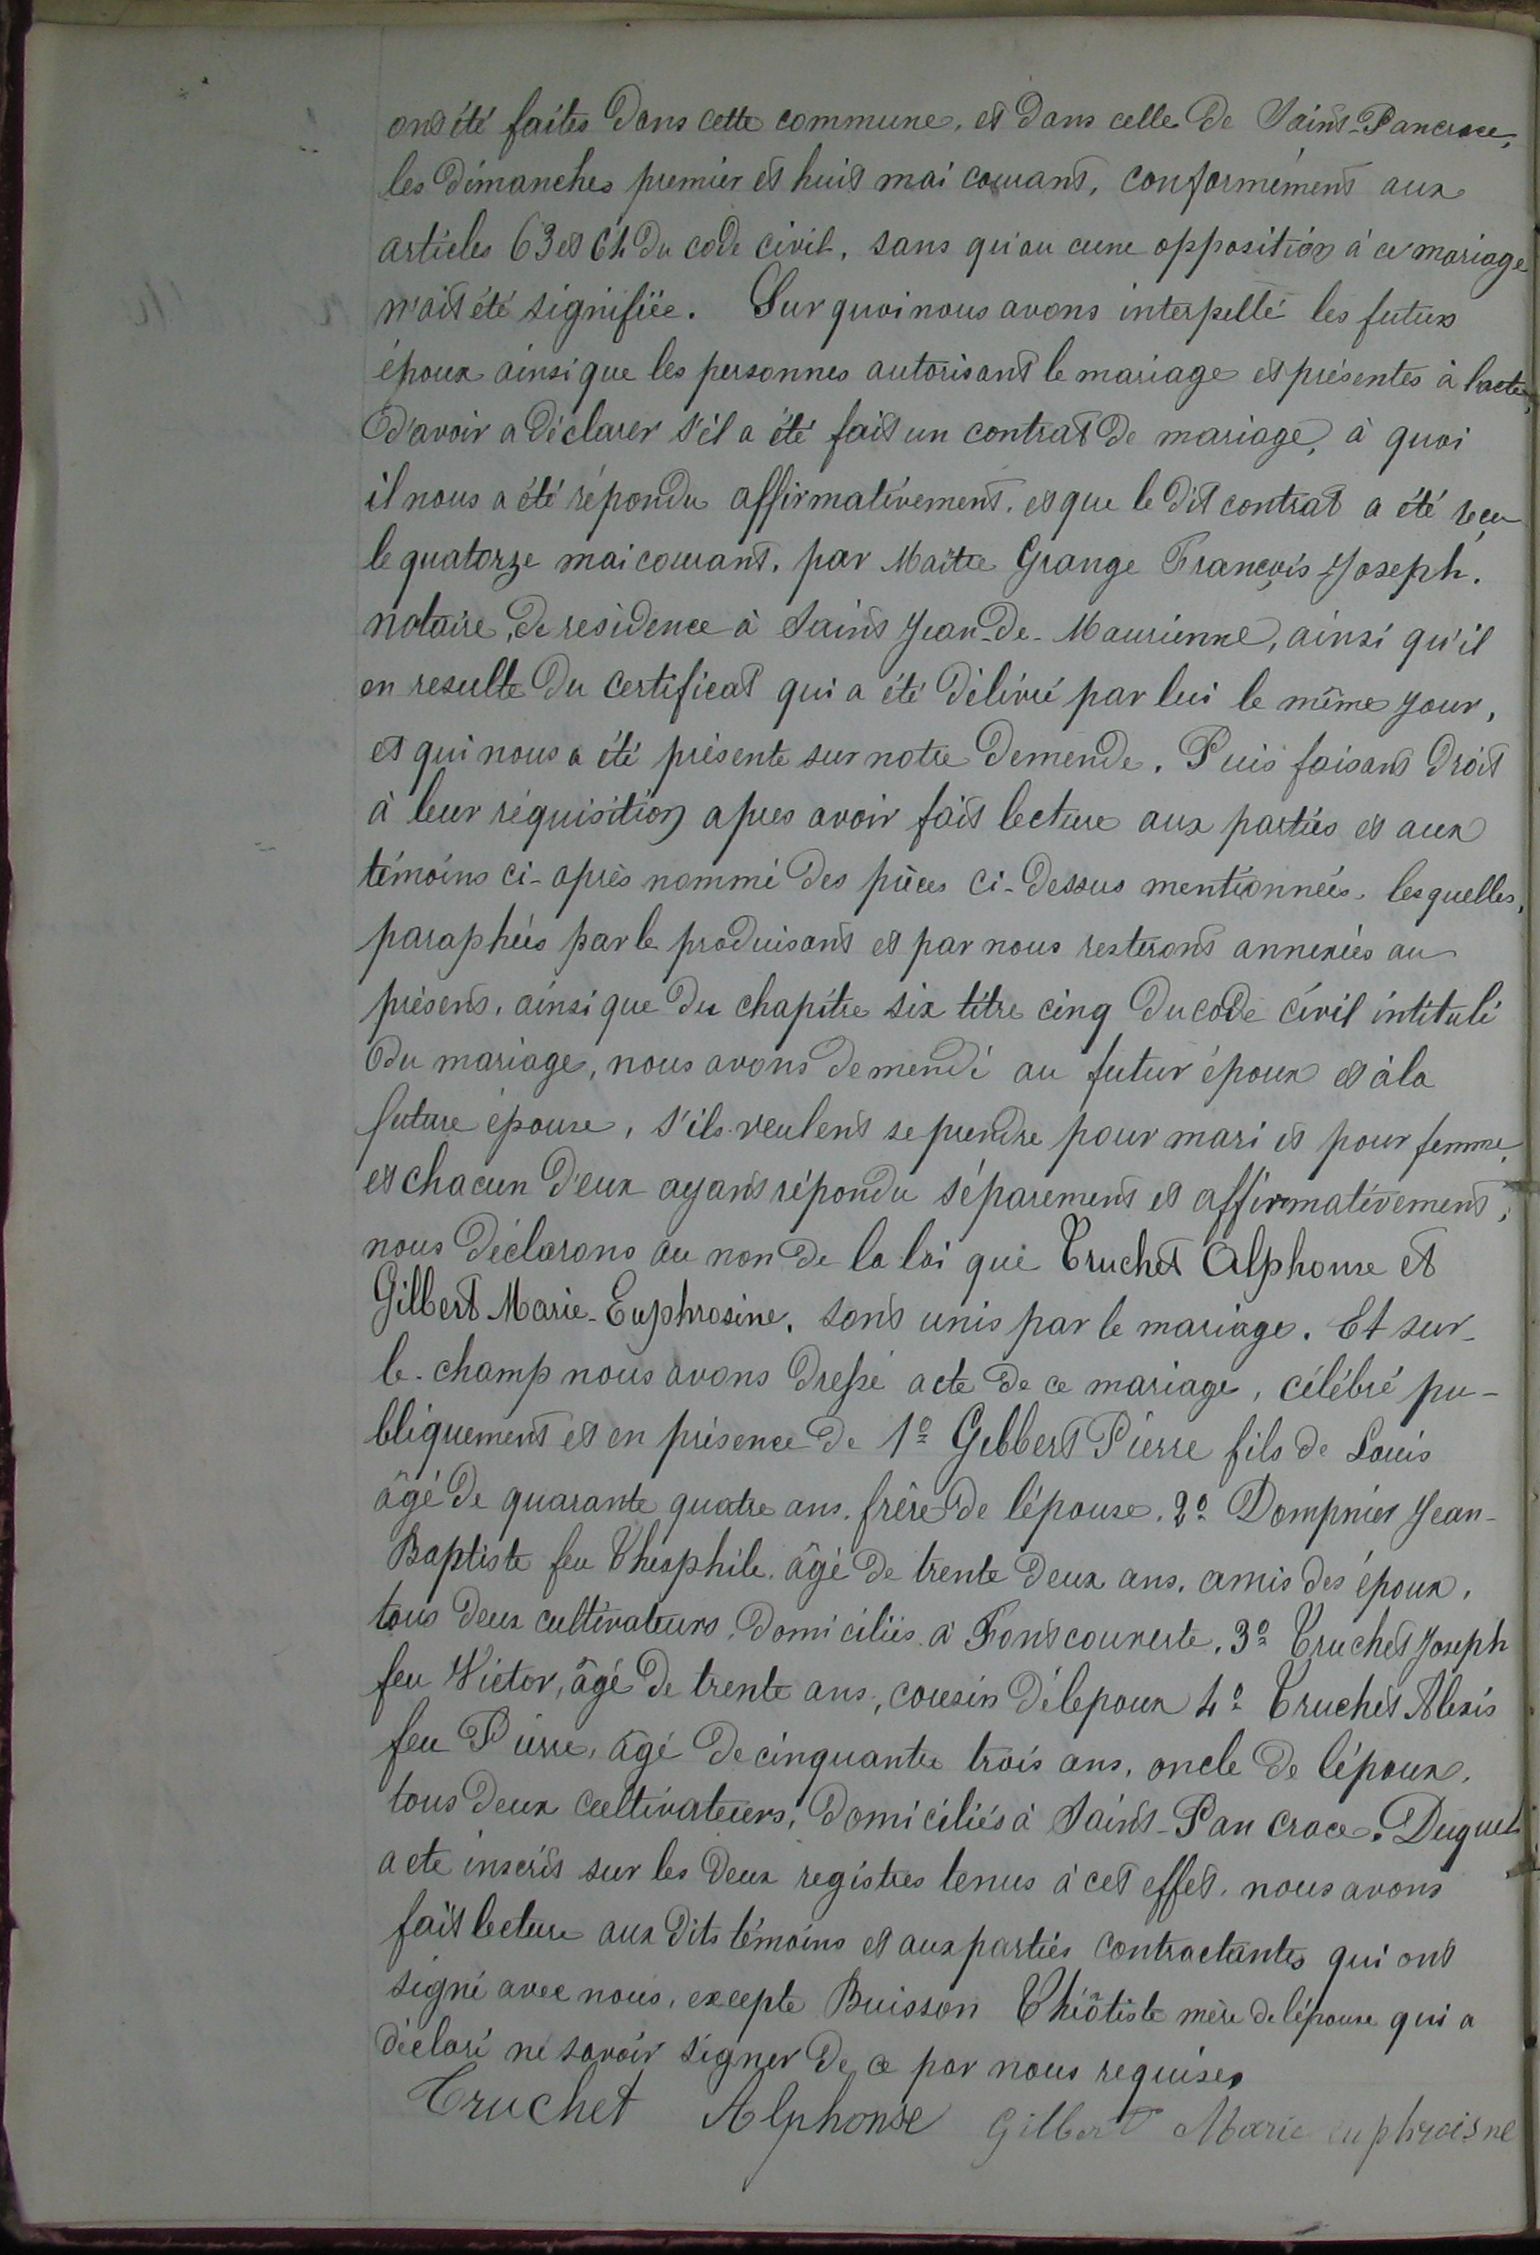 ont été faites dans cette commune, et dans celle de Saint-Pancrace,
les dimanches premier et huit mai courant, conformément aux
articles 63 et 64 du code civil, sans qu'au cune opposition à ce mariage
n'ait été signifiée. Sur quoi nous avons interpellé les futurs
époux ainsi que les personnes autorisant le mariage et présentes à l'acte,
d'avoir a déclarer s'il a été fait un contrat de mariage, à quoi
il nous a été répondu affirmativement, et que le dit contrat a été reçu
le quatorze mai courant, par Maître Grange François Joseph,
notaire, de residence à Saint Jean-de-Maurienne, ainsi qu'il
en resulte du certificat qui a été délivré par lui le même jour,
et qui nous a été présente sur notre demende. Puis faisant droit
à leur réquisition apres avoir fait lecture aux parties et aux
témoins ci-après nommé des pièces ci-dessus mentionnées, lesquelles,
paraphées par le produisant et par nous resteront annexées au
présent, ainsi que du chapitre six titre cinq du code civil intitulé
du mariage, nous avons demendé au futur époux et à la
future épouse, s'ils veulent se prendre pour mari et pour femme,
et chacun d'eux ayant répondu séparement et affirmativement,
nous déclarons au non de la loi que Truchet Alphonse et
Gilbert Marie-Euphrosine, sont unis par le mariage. Et sur-
le-champ nous avons dressé acte de ce mariage, célébré pu-
bliquement et en présence de 1º Gilbert Pierre fils de Louis
âgé de quarante quatre ans, frère de l'épouse, 2º Dompnier Jean-
Baptiste feu Théophile, âgé de trente deux ans, amis des époux,
tous deux cultivateurs, domiciliés à Fontcouverte, 3º Truchet Joseph
feu Victor, âgé de trente ans, cousin de l'epoux 4º Truchet Alexis
feu Pierre, âgé de cinquante trois ans, oncle de l'époux,
tous deux cultivateurs, domiciliés à Saint-Pan crace. Duquel
acte inscrit sur les deux registres tenus à cet effet, nous avons
fait lecture aux dits témoins et aux parties contractantes qui ont
signé avec nous, excepte Buisson Théôtiste mère de l'épouse qui a
déclaré ne savoir signer de ce par nous requise.
Truchet Alphonse Gilbert Marie euphroisne